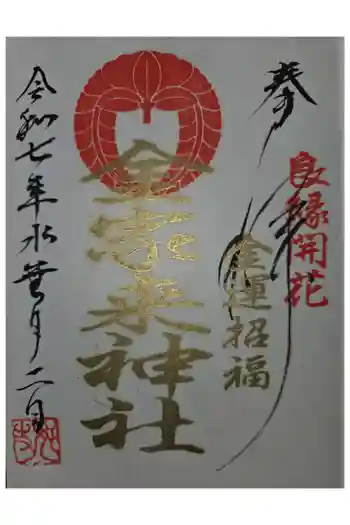 奉拝
良縁開花
金運招福
金寄来神社
令和七年水無月二日